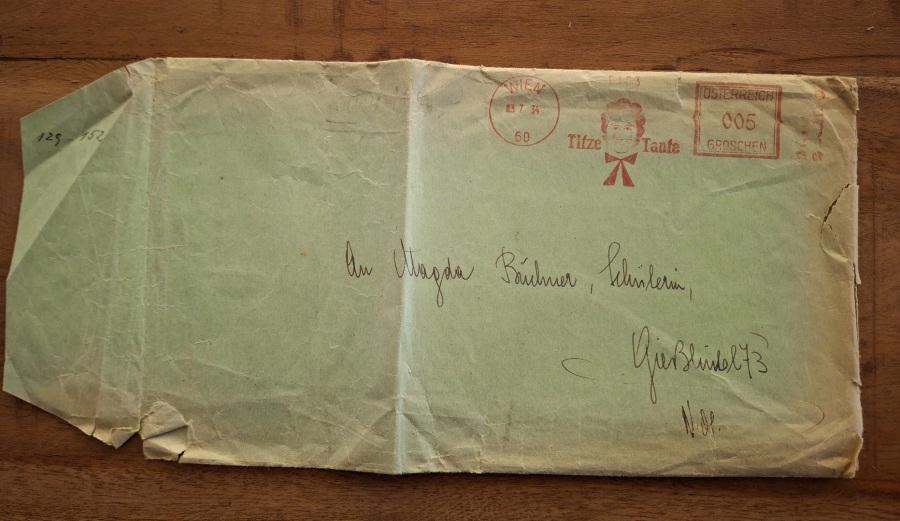 129 152
WIEN
7. 34
60
Titze Tante
ÖSTERREICH
005
GROSCHEN
An Magda Bäulmer, Schülerin,
Gießhübel 73
N.Ö.